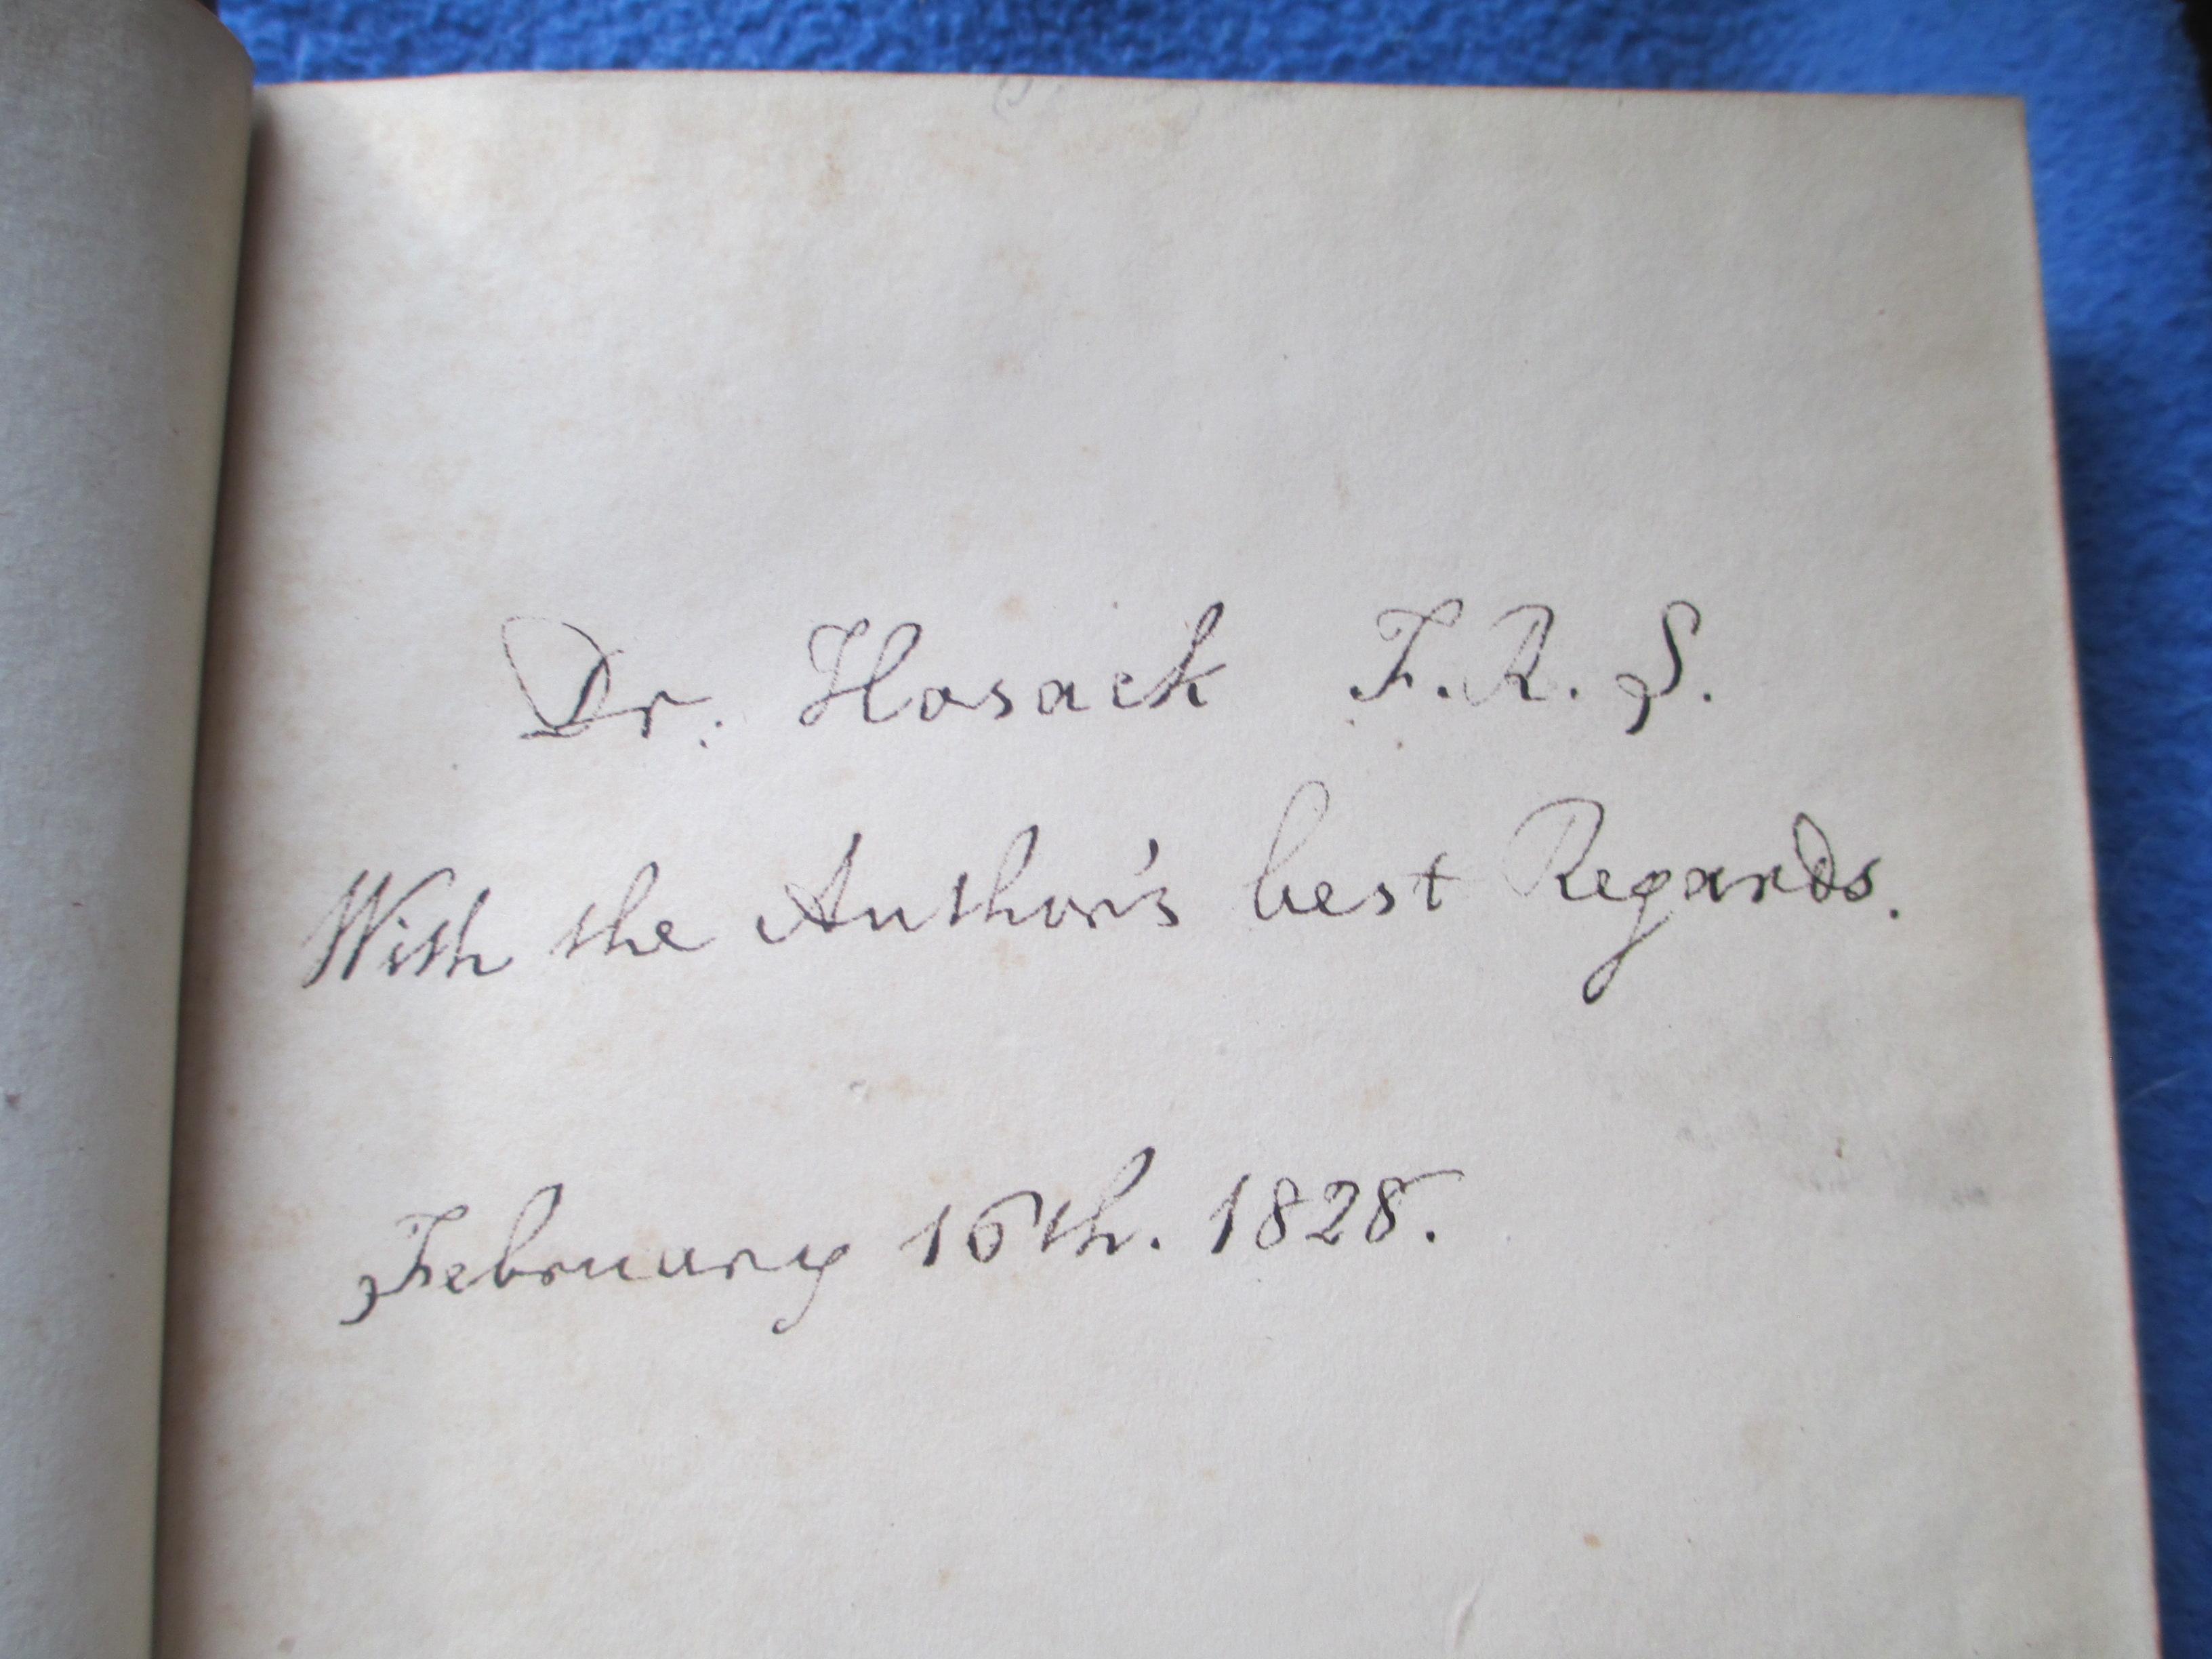 Dr. Hosack F.R.S.
With the Author's best Regards.
February 16th. 1828.